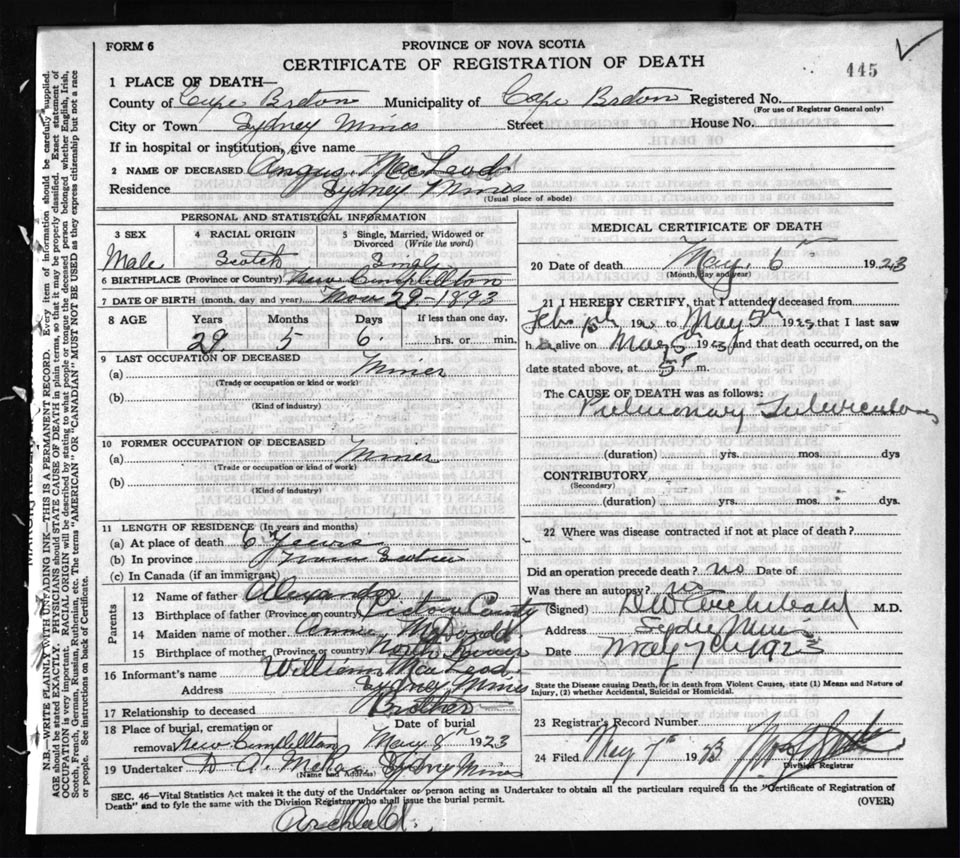 FORM 6
PROVINCE OF NOVA SCOTIA
CERTIFICATE OF REGISTRATION OF DEATH
445
1 PLACE OF DEATH—
County of Cape Breton Municipality of Cape Breton Registered No.
(For use of Registrar General only)
City or Town Sydney Mines Street House No.
If in hospital or institution, give name
2 NAME OF DECEASED Angus MacLeod
Residence Sydney Mines
(Usual place of abode)
PERSONAL AND STATISTICAL INFORMATION
3 SEX Male
4 RACIAL ORIGIN Scotch
5 Single, Married, Widowed or Divorced (Write the word) Single
6 BIRTHPLACE (Province or Country) New Campbellton
7 DATE OF BIRTH (month, day and year) Nov 29-1893
8 AGE Years Months Days If less than one day,
29 5 6 hrs. or min.
9 LAST OCCUPATION OF DECEASED
(a) Miner
(Trade or occupation or kind or work)
(b)
(Kind of industry)
10 FORMER OCCUPATION OF DECEASED
(a) Miner
(Trade or occupation or kind of work)
(b)
(Kind of industry)
11 LENGTH OF RESIDENCE (In years and months)
(a) At place of death 6 Years
(b) In province Nova Scotia
(c) In Canada (if an immigrant)
Parents
12 Name of father Alexander
13 Birthplace of father (Province or country) Pictou County
14 Maiden name of mother Annie McDonald
15 Birthplace of mother (Province or country) North River
16 Informant's name William MacLeod
Address Sydney Mines
17 Relationship to deceased Brother
18 Place of burial, cremation or removal New Campbellton
Date of burial May 8th 1923
19 Undertaker D A McRae Sydney Mines
(Name and Address)
MEDICAL CERTIFICATE OF DEATH
20 Date of death May 6th 1923
(Month, day and year)
21 I HEREBY CERTIFY, that I attended deceased from
19 to May 5th 1923 that I last saw
h alive on May 5th 1923 and that death occurred, on the
date stated above, at 5 m.
The CAUSE OF DEATH was as follows:
Pulmonary Tuberculosis
(duration) yrs. mos. dys
CONTRIBUTORY
(Secondary)
(duration) yrs. mos. dys.
22 Where was disease contracted if not at place of death?
Did an operation precede death? no Date of
Was there an autopsy? no
(Signed) D W Archibald M.D.
Address Sydney Mines
Date May 7th 1923
State the Disease causing Death, or in death from Violent Causes, state (1) Means and Nature of
Injury, (2) whether Accidental, Suicidal or Homicidal.
23 Registrar's Record Number
24 Filed May 7th 1923
Division Registrar
SEC. 46—Vital Statistics Act makes it the duty of the Undertaker or person acting as Undertaker to obtain all the particulars required in the "Certificate of Registration of
Death" and to fyle the same with the Division Registrar who shall issue the burial permit.
(OVER)
Archibald.
N.B.—WRITE PLAINLY WITH UNFADING INK—THIS IS A PERMANENT RECORD. Every item of information should be carefully supplied.
AGE should be stated EXACTLY. PHYSICIANS should STATE CAUSE OF DEATH in plain terms, so that it may be properly classified. Exact statement of
OCCUPATION is very important. RACIAL ORIGIN will be described by stating to what people or tongue the deceased person belonged whether English, Irish,
Scotch, French, German, Russian, Ruthenian, etc. The terms "AMERICAN" OR "CANADIAN" MUST NOT BE USED as they express citizenship but not a race
or people. See instructions on back of Certificate.